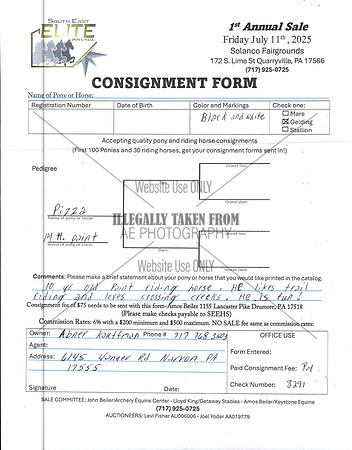 SOUTH EAST
ELITE
1st Annual Sale
Friday July 11th, 2025
Solanco Fairgrounds
172 S. Lime St Quarryville, PA 17566
(717) 925-0725
CONSIGNMENT FORM
Name of Pony or Horse:
Registration Number Date of Birth Color and Markings Check one:
Black and white
Mare
Gelding
Stallion
Accepting quality pony and riding horse consignments
(First 100 Ponies and 30 riding horses, get your consignment forms sent in!)
Pedigree
Grand Sire
Website Use ONLY
Grand Dam
Pizza
Name of pony or horse
ILLEGALLY TAKEN FROM
AE PHOTOGRAPHY
M.H. paint
Website Use ONLY
Grand Dam
Comments: Please make a brief statement about your pony or horse that you would like printed in the catalog.
10 yr old Paint riding horse. He likes trail
riding and loves crossing creeks. He is fun!
Consignment fee of $75 needs to be sent with this form-Amos Beiler 1155 Lancaster Pike Drumore, PA 17518
(Please make checks payable to SEEHS)
Commission Rates: 6% with a $200 minimum and $500 maximum. NO SALE fee same as commission rates:
Owner: Abner Kauffman Phone # 717 768 3603
OFFICE USE
Agent:
Form Entered:
Address: 6145 Yoner Rd Narvon PA
17555
Paid Consignment Fee: Pd
Check Number: 8291
Signature Date:
SALE COMMITTEE: John Beiler/Archery Equine Center - Lloyd King/Getaway Stables - Amos Beiler/Keystone Equine
(717) 925-0725
AUCTIONEERS: Levi Fisher AU006006 - Joel Yoder AA019779